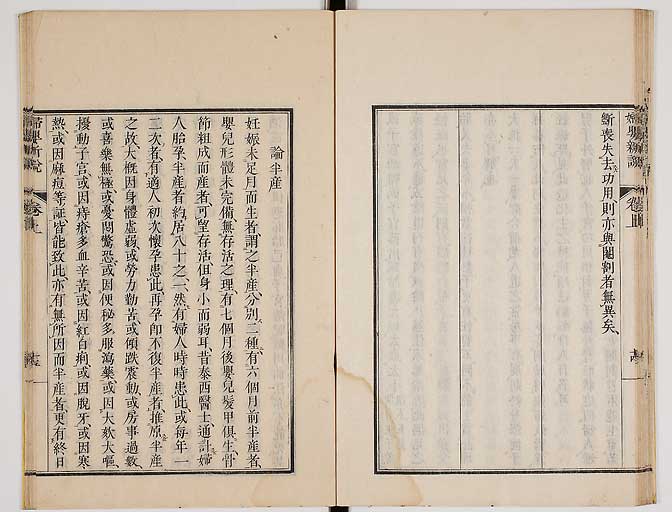 漸喪失去功用則亦與閹割者無異矣
婦嬰新說
論半產
妊娠未足月而生者謂之半產分別二種有六個月前半產者
嬰兒形體未完備無存活之理有七個月後嬰兒髮甲俱生骨
節粗成而產者可望存活但身小而弱耳昔泰西醫士通計婦
人胎孕半產者約居八十之一然有婦人時時患此或每年一
二次者有適人初次懷孕患此再孕即不復半產者推原半產
之故大概因身體虛弱或勞力勤苦或傾跌震動或房事過數
或喜樂無極或憂悶驚恐或因便秘多服瀉藥或因大欬大嘔
擾動子宮或因痔瘡多血辛苦或因紅白痢或因脫牙或因寒
熱或因麻痘等証皆能致此亦有無所因而半產者更有終日
婦嬰新說